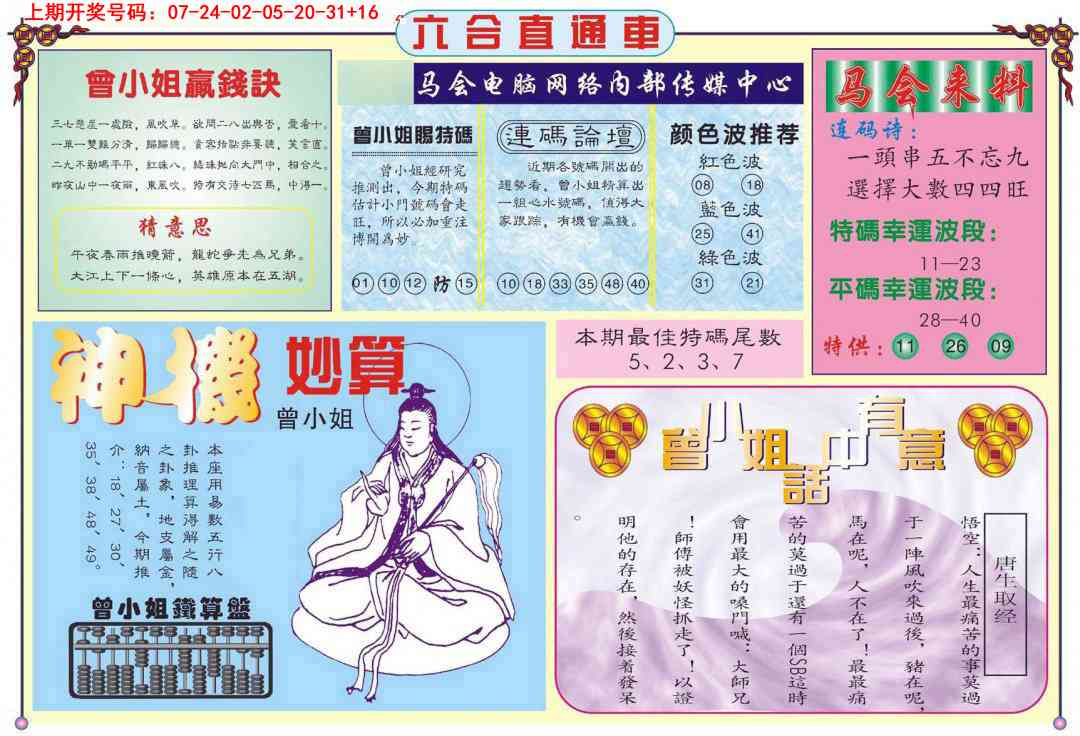 上期开奖号码：07-24-02-05-20-31+16
六合直通車
马会电脑网络内部传媒中心
曾小姐贏錢訣
三七懸崖一處險，風吹草。欲問二八出與否，疊看十。
一單一雙難分清，歸歸總。
二九不動碼平平，紅味八。
昨夜山中一夜雨，東風吹。
猜意思
午夜春雨推曉箭，龍蛇爭先為兄弟。
大江上下一條心，英雄原本在五湖。
曾小姐賜特碼
曾小姐經研究
推測出，今期特碼
估計小門號碼會走
旺，所以必加重注
博開為妙
01 10 12 防 15
連碼論壇
近期各號碼開出的
趨勢看，曾小姐精算出
一組心水號碼，值得大
家跟踪，有機會贏錢。
10 18 33 35 48 40
颜色波推荐
紅色波
08 18
藍色波
25 41
綠色波
31 21
马会来料
连码诗：
一頭串五不忘九
選擇大數四四旺
特碼幸運波段：
11—23
平碼幸運波段：
28—40
特供：11 26 09
本期最佳特碼尾數
5、2、3、7
神機妙算
曾小姐
本座用易數五行八
卦推理算得解之隨
之卦象，地支屬金，
納音屬土，今期推
介：18、27、30、
35、38、48、49。
曾小姐鐵算盤
曾小姐話中有意
唐生取经
悟空：人生最痛苦的事莫過
于一陣風吹來過後，豬在呢，
馬在呢，人不在了！最最痛
苦的莫過于還有一個SB這時
會用最大的嗓門喊：大師兄
！師傅被妖怪抓走了！以證
明他的存在，然後接着發呆
。